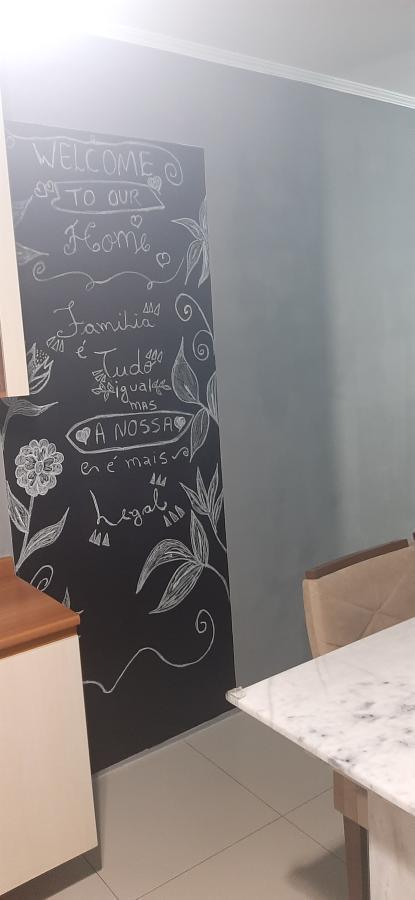 WELCOME
TO OUR
Home
Familia
é
Tudo
igual
MAS
A NOSSA
é mais
Legal